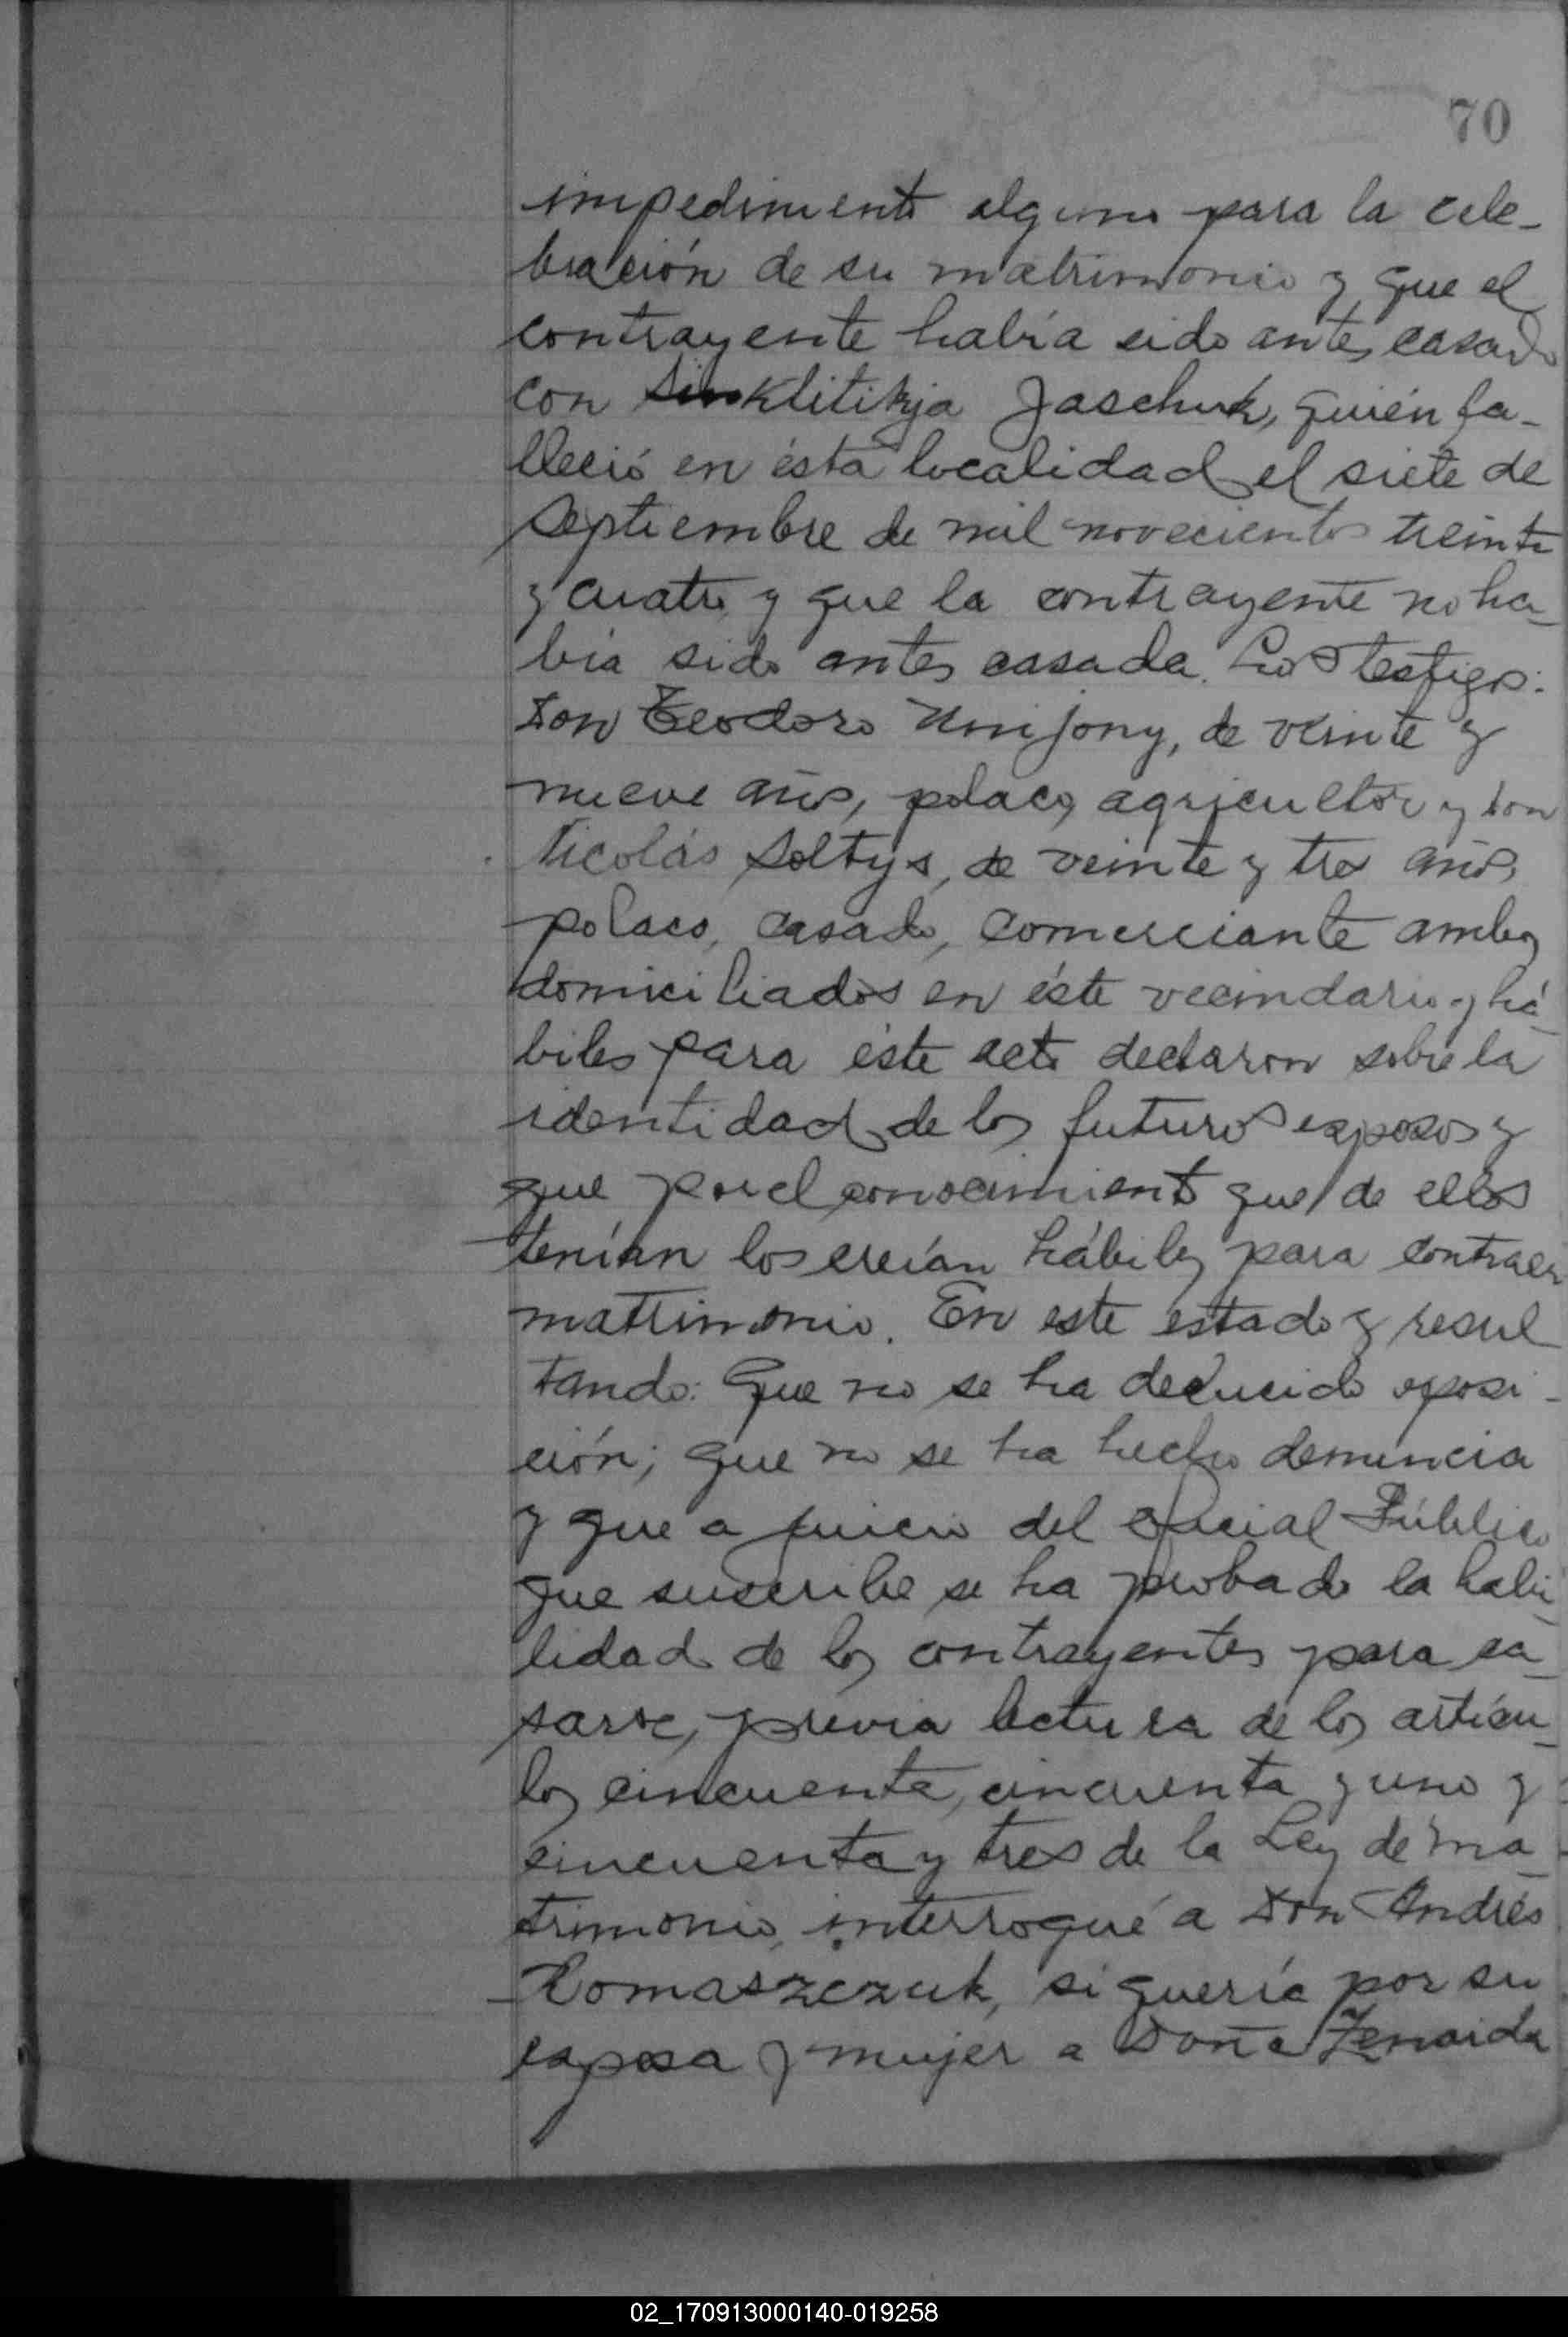 70
impedimento alguno para la cele-
bración de su matrimonio y que el
contrayente había sido antes casado
con Sinklitikja Jaschuk, quién fa-
lleció en ésta localidad el siete de
Septiembre de mil novecientos treinta
y cuatro y que la contrayente no ha-
bía sido antes casada. Los testigos:
Don Teodoro de veinte y
nueve años, polaco, agricultor y don
Nicolás Soltys, de veinte y tres años,
polaco, casado, comerciante ambos
domiciliados en éste vecindario y há-
biles para éste acto declaron sobre la
identidad de los futuros esposos y
que por el conocimiento que de ellos
tenían los creían hábiles para contraer
matrimonio. En este estado y resul
tando: Que no se ha deducido oposi-
ción; que no se ha hecho denuncia
y que a juicio del oficial Público
que suscribe se ha probado la habi-
lidad de los contrayentes para ca-
sarse, previa lectura de los artícu-
los cincuenta, cincuenta y uno y
cincuenta y tres de la Ley de ma-
trimonio, interrogué a Don Andrés
Romaszczuk, si quería por su
esposa y mujer a Doña Zenaida
02_170913000140-019258